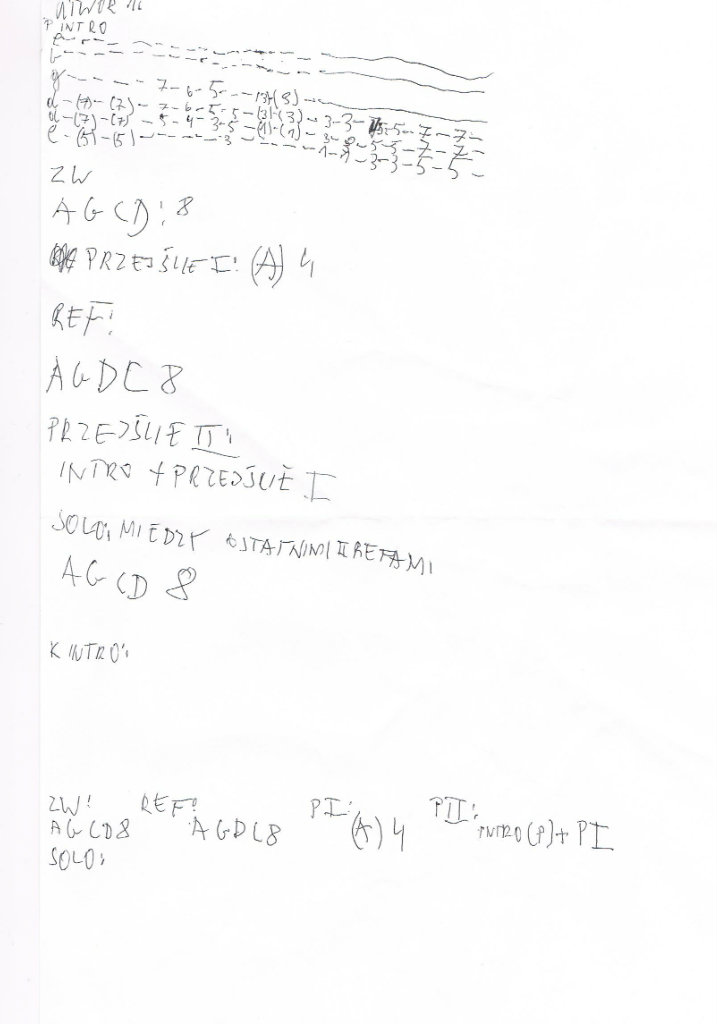 UTWÓR 16
P INTRO
e - - - - - - - - - - - -
b - - - - - - - - - - - -
g - - - - - 7 - 6 - 5 - - - (3)-(3) - - -
d - (7) - (7) - 7 - 6 - 5 - 5 - (3)-(3) - 3 - 3 - 5 - 7 - 7 -
a - (7) - (7) - 5 - 4 - 3 - 5 - (1) - (1) - 3 - 5 - 5 - 7 - 7 -
e - (5) - (5) - - - - - 3 - - - - - 1 - 1 - 3 - 3 - 5 - 5 -
ZW
AGCD: 8
PRZEJŚCIE I: (A) 4
REF:
AGDC 8
PRZEJŚCIE II:
INTRO + PRZEJŚCIE I
SOLO: MIEDZY OSTATNIMI II REFAMI
AGCD 8
K INTRO:
ZW: REF: PI: PII:
AGCD8 AGDC8 (A) 4 INTRO(P)+ PI
SOLO: